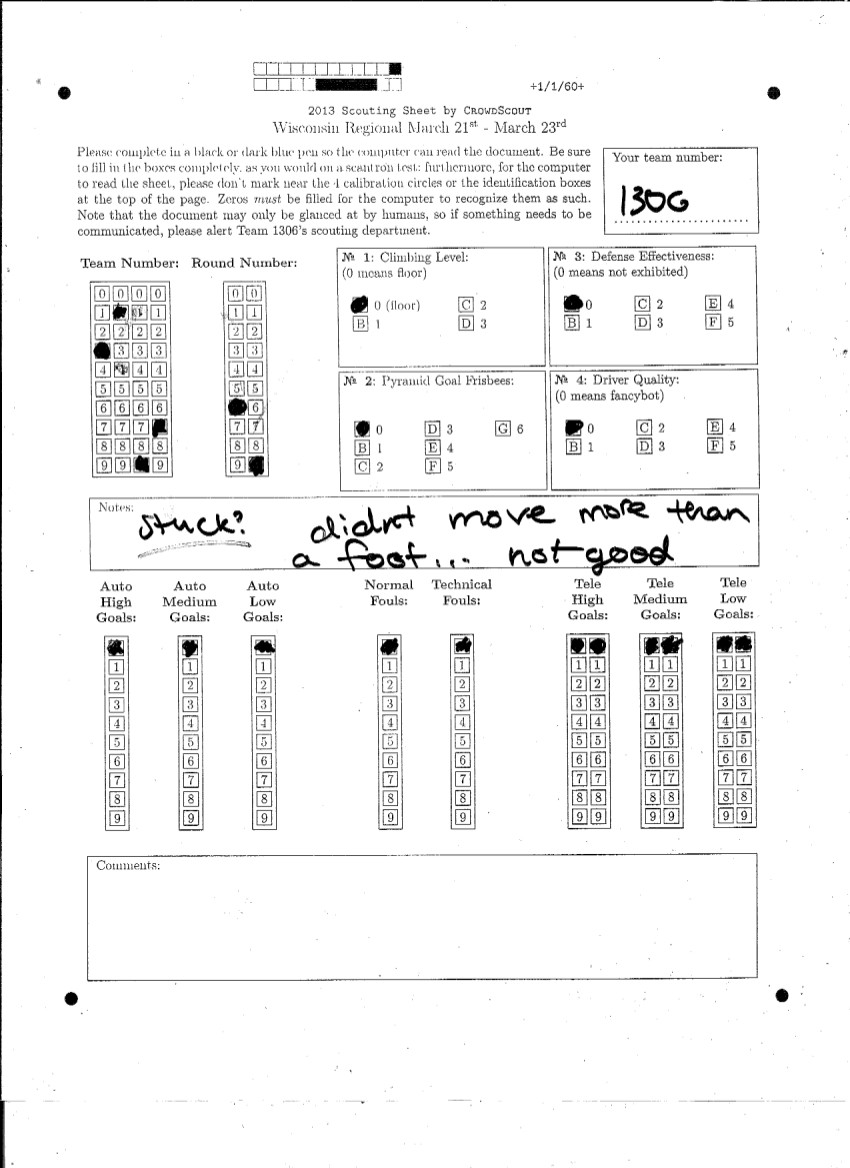 +1/1/60+
2013 Scouting Sheet by CrowdScout
Wisconsin Regional March 21st - March 23rd
Please complete in a black or dark blue pen so the computer can read the document. Be sure
to fill in the boxes completely, as you would on a scantron test; furthermore, for the computer
to read the sheet, please don't mark near the 4 calibration circles or the identification boxes
at the top of the page. Zeros must be filled for the computer to recognize them as such.
Note that the document may only be glanced at by humans, so if something needs to be
communicated, please alert Team 1306's scouting department.
Your team number:
1306
Team Number: Round Number:
0 0 0 0 0 0
1 1 1 1 1
2 2 2 2 2 2
3 3 3 3 3
4 4 4 4 4
5 5 5 5 5 5
6 6 6 6 6
7 7 7 7 7
8 8 8 8 8 8
9 9 9 9
№ 1: Climbing Level:
(0 means floor)
0 (floor) C 2
B 1 D 3
№ 3: Defense Effectiveness:
(0 means not exhibited)
0 C 2 E 4
B 1 D 3 F 5
№ 2: Pyramid Goal Frisbees:
0 D 3 G 6
B 1 E 4
C 2 F 5
№ 4: Driver Quality:
(0 means fancybot)
0 C 2 E 4
B 1 D 3 F 5
Notes:
stuck? didnt move more than
a foot... not good
Auto Auto Auto Normal Technical Tele Tele Tele
High Medium Low Fouls: Fouls: High Medium Low
Goals: Goals: Goals: Goals: Goals: Goals:
1 1 1 1 1 1 1 1 1 1 1
2 2 2 2 2 2 2 2 2 2 2
3 3 3 3 3 3 3 3 3 3 3
4 4 4 4 4 4 4 4 4 4 4
5 5 5 5 5 5 5 5 5 5 5
6 6 6 6 6 6 6 6 6 6 6
7 7 7 7 7 7 7 7 7 7 7
8 8 8 8 8 8 8 8 8 8 8
9 9 9 9 9 9 9 9 9 9 9
Comments: